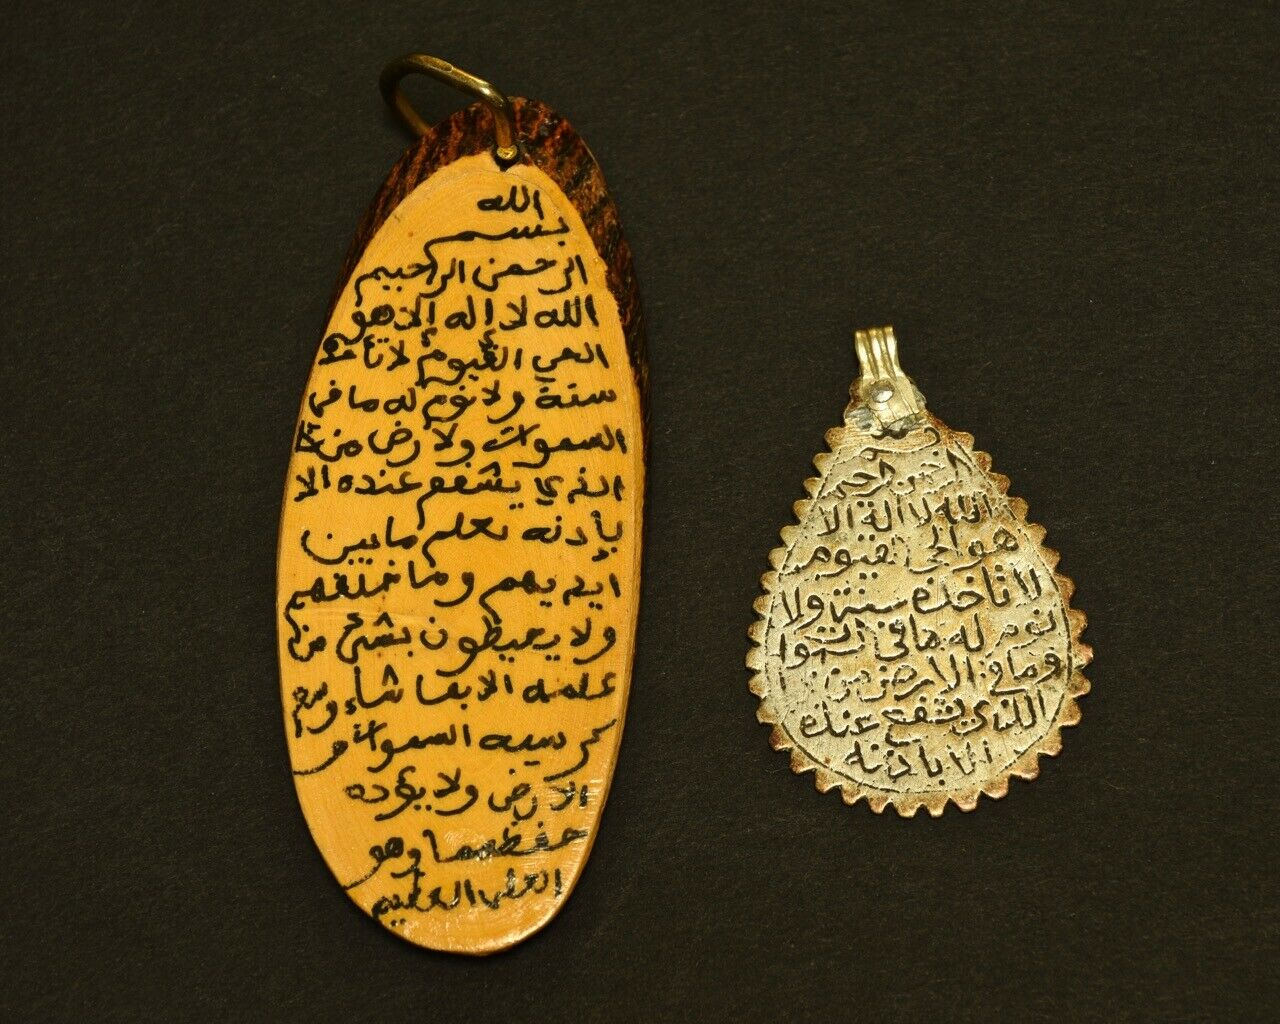 الله
بسم
الرحمن الرحيم
الله لا إله إلا هو
الحي القيوم لا تأخذه
سنة ولا نوم له ما في
السموات ولارض من ذا
الذي يشفع عنده الا
بإذنه يعلم ما بين
ايديهم وما خلفهم
ولا يحيطون بشئ من
علمه الا بما شاء وسع
كرسيه السموات و
الارض ولا يؤده
حفظهما وهو
العلي العظيم
الرحمن الرحيم
الله لا الة الا
هو الحي القيوم
لا تاخذه سنة ولا
نوم له ما في السموا
وما في الارض من
الذي يشفع عنده
الا باذنه